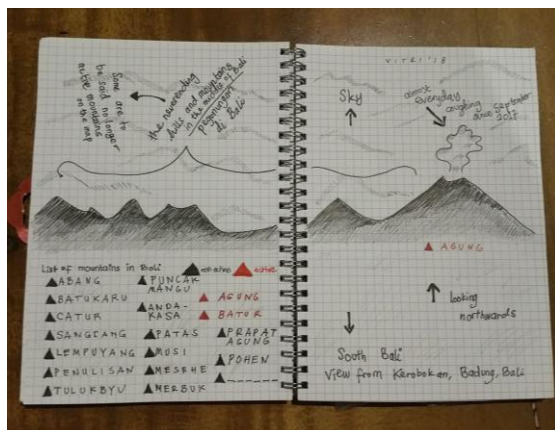 Some are to
be said no longer
active mountains
on the map
the neverending
hills and mountains
in the middle of Bali
pegunungan
di Bali
List of mountains in Bali
non active
active
ABANG
BATUKARU
CATUR
SANGIANG
LEMPUYANG
PENULISAN
TULUKBYU
PUNCAK
MANGU
ANDA-
KASA
PATAS
MUSI
MESEHE
MERBUK
AGUNG
BATUR
PRAPAT
AGUNG
POHEN
VITRI '18
Sky
almost
everyday
coughing
since September
AGUNG
looking
northwards
South Bali
View from Kerobokan, Badung, Bali